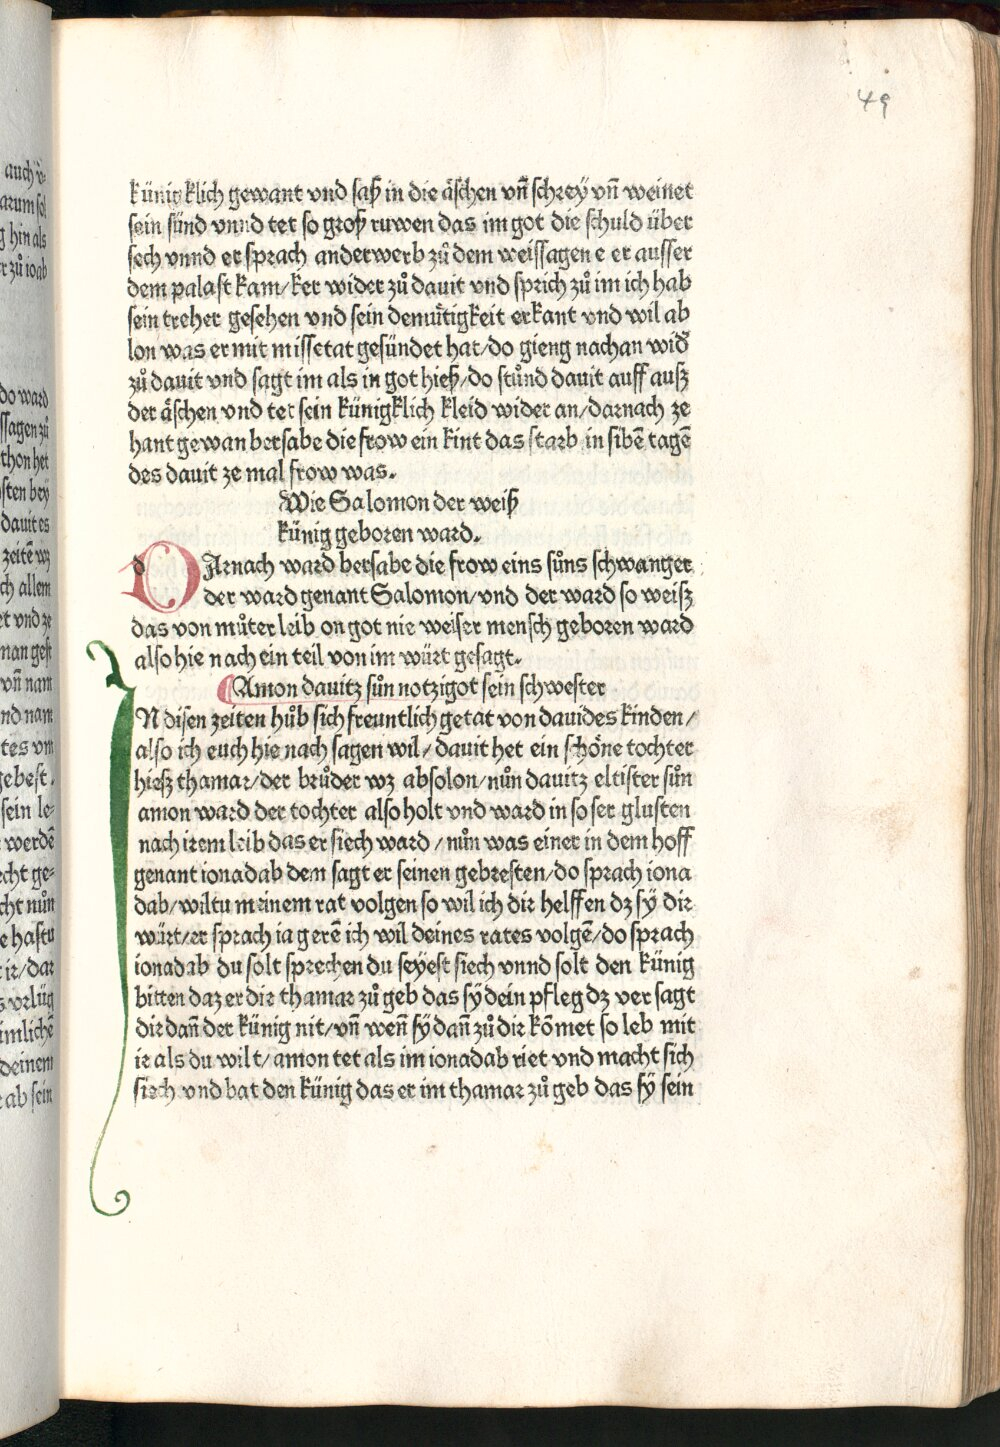 49
künigklich gewant vnd saß in die äschen vn̄ schrey vn̄ weinet
sein sünd vnnd tet so groß ruwen das im got die schuld über
sech vnnd er sprach anderwerb zů dem weissagen e er ausser
dem palast kam/ker wider zů dauit vnd sprich zů im ich hab
sein treher gesehen vnd sein demütigkeit erkant vnd wil ab
lon was er mit missetat gesündet hat/do gieng nachan wid̄
zů dauit vnd sagt im als in got hieß/do stůnd dauit auff ausz
der äschen vnd tet sein künigklich kleid wider an/darnach ze
hant gewan bersabe die frow ein kint das starb in sibē tagē
des dauit ze mal frow was.
Wie Salomon der weiß
künig geboren ward.
DArnach ward bersabe die frow eins sůns schwanger
der ward genant Salomon/vnd der ward so weisz
das von můter leib on got nie weiser mensch geboren ward
also hie nach ein teil von im würt gesagt.
Amon dauitz sůn notzigot sein schwester
IN disen zeiten hůb sich freuntlich getat von dauides kinden/
also ich euch hie nach sagen wil/dauit het ein schöne tochter
hiesz thamar/der brůder wz absolon/nůn dauitz eltister sůn
amon ward der tochter also holt vnd ward in so ser glusten
nach irem leib das er siech ward/nůn was einer in dem hoff
genant ionadab dem sagt er seinen gebresten/do sprach iona
dab/wiltu meinem rat volgen so wil ich dir helffen dz sÿ dir
würt/er sprach ia gerē ich wil deines rates volgē/do sprach
ionadab du solt sprechen du seyest siech vnnd solt den künig
bitten daz er dir thamar zů geb das sÿ dein pfleg dz ver sagt
dir dan̄ der künig nit/vn̄ wen̄ sÿ dan̄ zů dir kōmet so leb mit
ir als du wilt/amon tet als im ionadab riet vnd macht sich
siech vnd bat den künig das er im thamar zů geb das sÿ sein